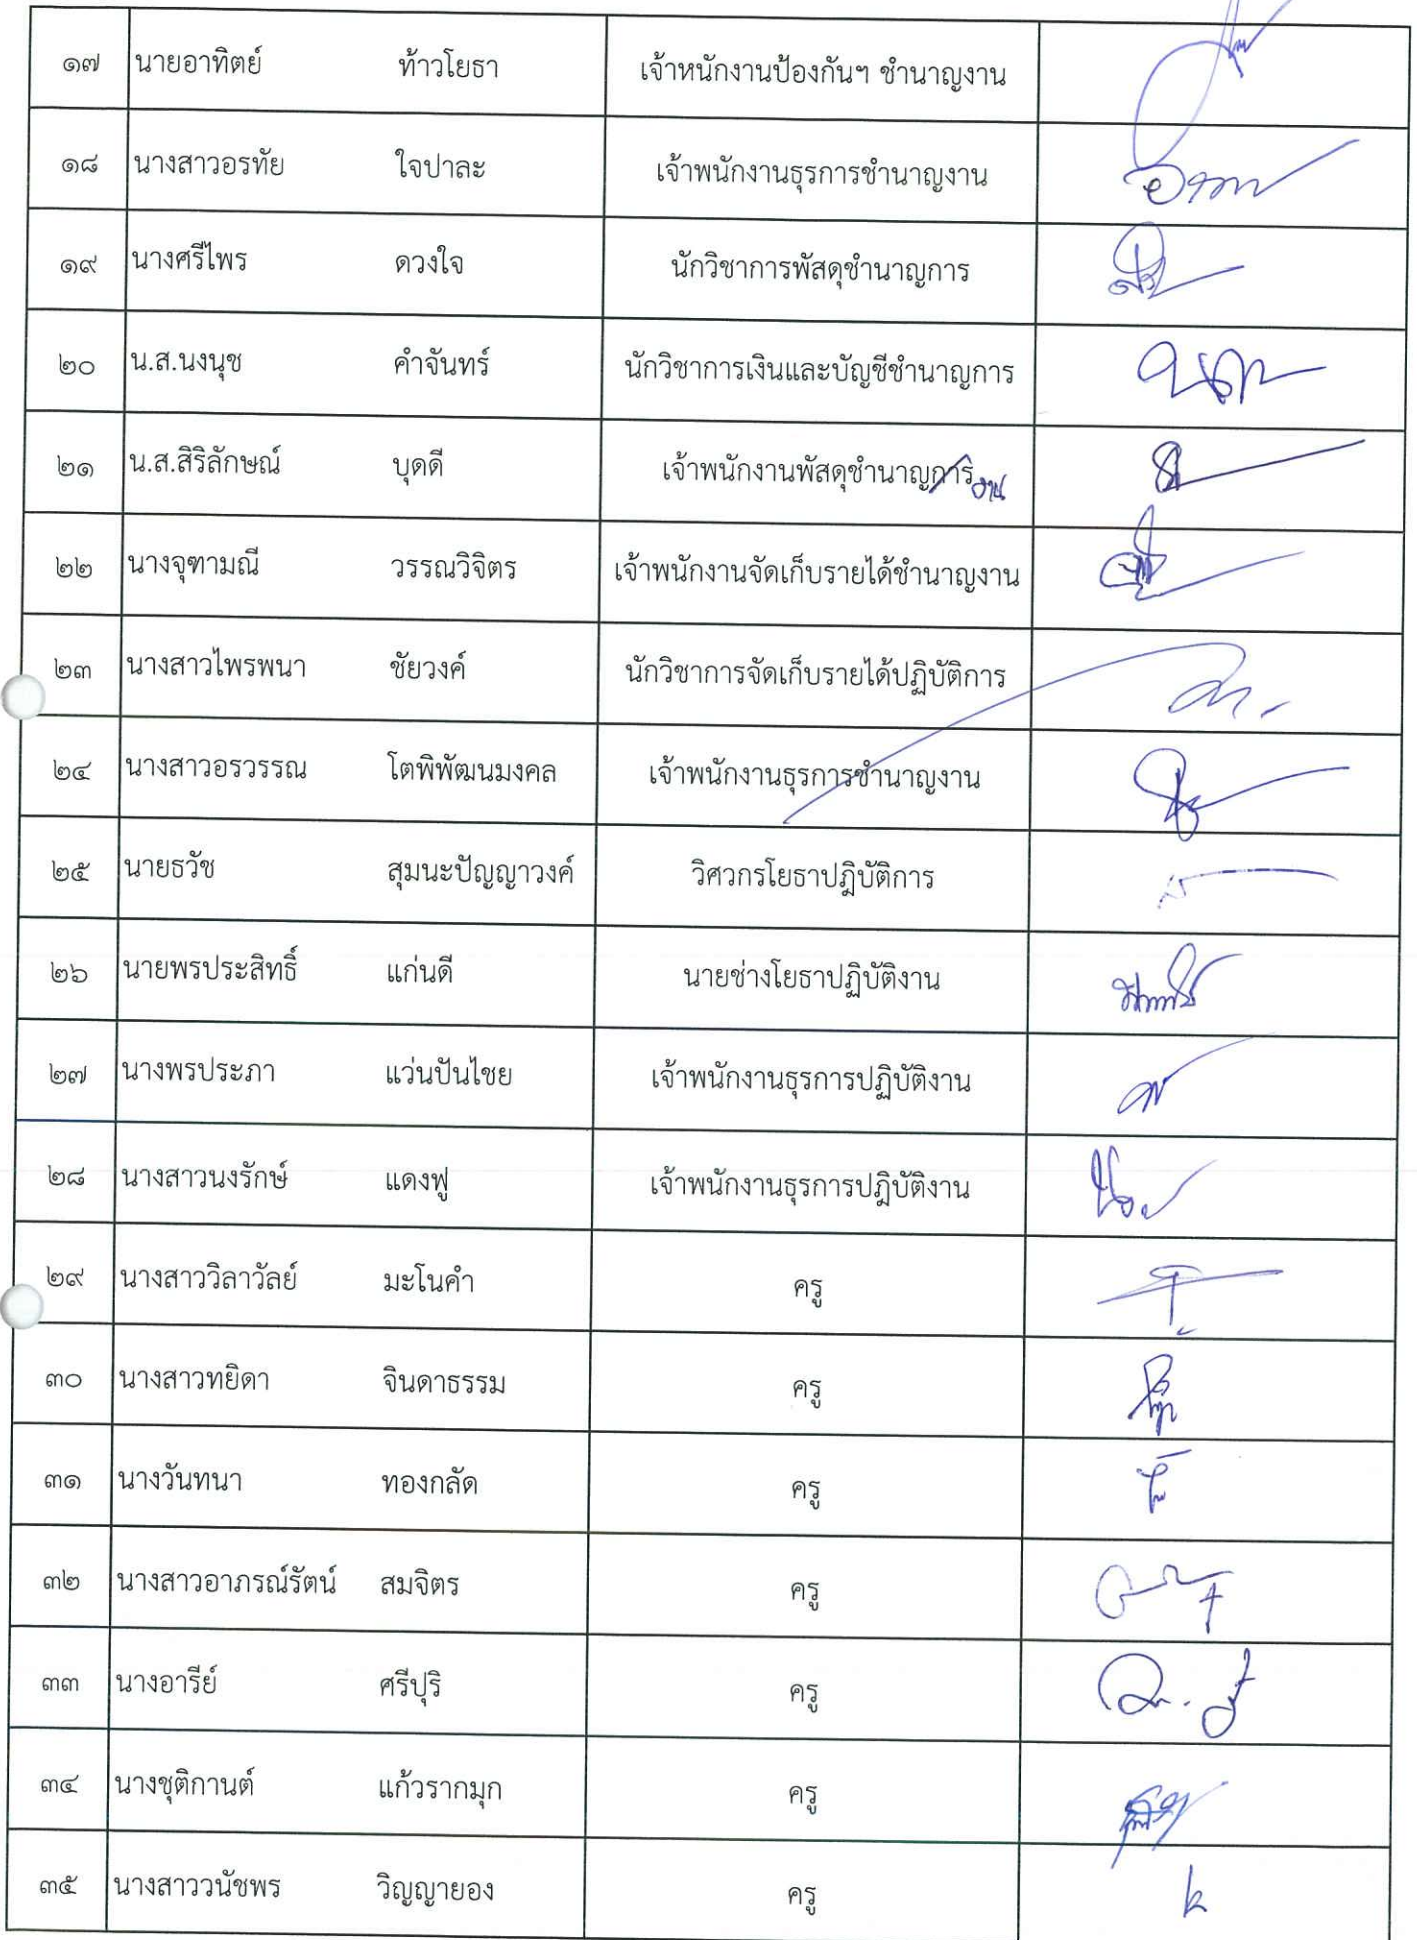 ๑๗ นายอาทิตย์ ท้าวโยธา เจ้าหนักงานป้องกันฯ ชำนาญงาน
๑๘ นางสาวอรทัย ใจปาละ เจ้าพนักงานธุรการชำนาญงาน
๑๙ นางศรีไพร ดวงใจ นักวิชาการพัสดุชำนาญการ
๒๐ น.ส.นงนุช คำจันทร์ นักวิชาการเงินและบัญชีชำนาญการ
๒๑ น.ส.สิริลักษณ์ บุดดี เจ้าพนักงานพัสดุชำนาญการ งาน
๒๒ นางจุฑามณี วรรณวิจิตร เจ้าพนักงานจัดเก็บรายได้ชำนาญงาน
๒๓ นางสาวไพรพนา ชัยวงค์ นักวิชาการจัดเก็บรายได้ปฏิบัติการ
๒๔ นางสาวอรวรรณ โตพิพัฒนมงคล เจ้าพนักงานธุรการชำนาญงาน
๒๕ นายธวัช สุมนะปัญญาวงค์ วิศวกรโยธาปฏิบัติการ
๒๖ นายพรประสิทธิ์ แก่นดี นายช่างโยธาปฏิบัติงาน
๒๗ นางพรประภา แว่นปันไชย เจ้าพนักงานธุรการปฏิบัติงาน
๒๘ นางสาวนงรักษ์ แดงฟู เจ้าพนักงานธุรการปฏิบัติงาน
๒๙ นางสาววิลาวัลย์ มะโนคำ ครู
๓๐ นางสาวทยิดา จินดาธรรม ครู
๓๑ นางวันทนา ทองกลัด ครู
๓๒ นางสาวอาภรณ์รัตน์ สมจิตร ครู
๓๓ นางอารีย์ ศรีปุริ ครู
๓๔ นางชุติกานต์ แก้วรากมุก ครู
๓๕ นางสาววนัชพร วิญญายอง ครู